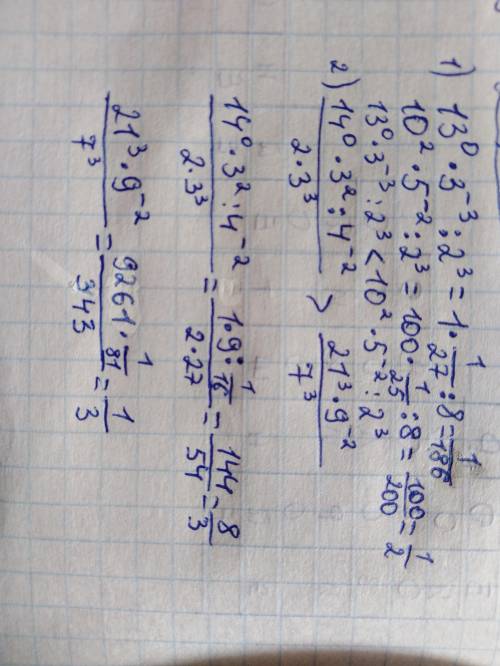 1) 13⁰ · 3⁻³ : 2³ = 1 · 1/27 : 8 = 1/186
10² · 5⁻² : 2³ = 100 · 1/25 : 8 = 100/200 = 1/2
13⁰ · 3⁻³ : 2³ < 10² · 5⁻² : 2³
2) (14⁰ · 3² : 4⁻²)/(2 · 3³) > (21³ · 9⁻²)/7³
(14⁰ · 3² : 4⁻²)/(2 · 3³) = (1 · 9 : 1/16)/(2 · 27) = 144/54 = 8/3
(21³ · 9⁻²)/7³ = (9261 · 1/81)/343 = 1/3